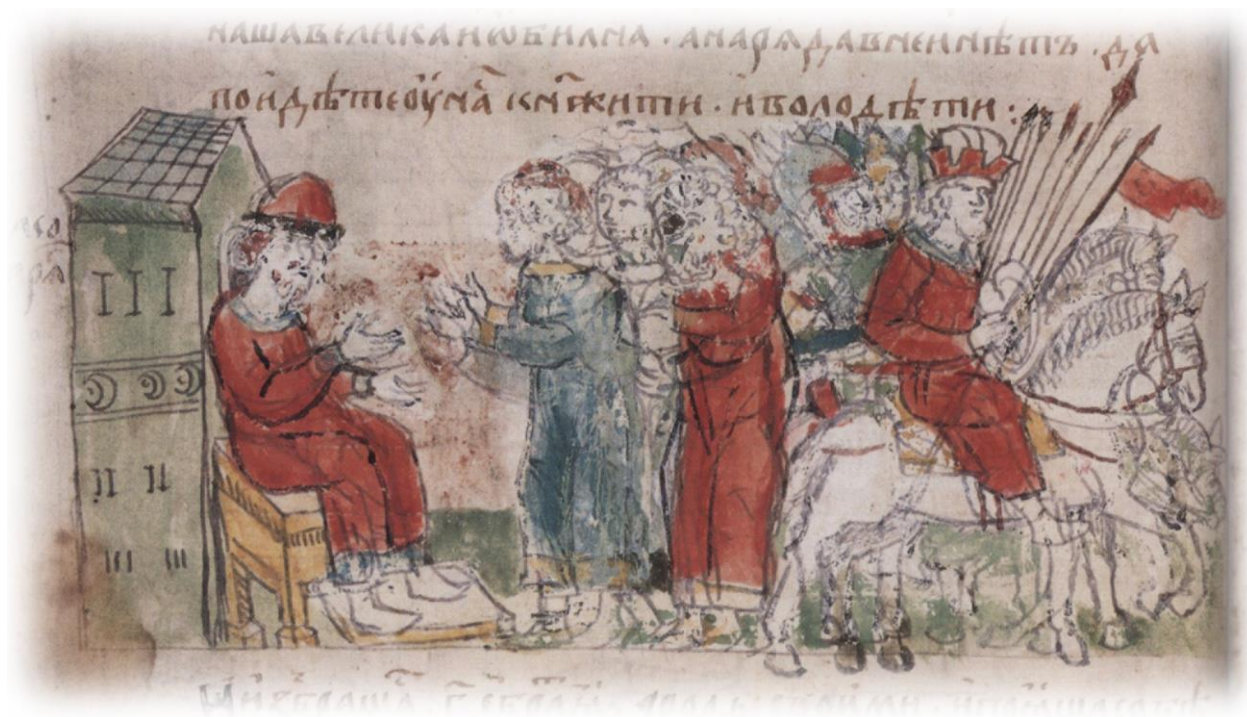 наша велика и ѡбилна · а нарѧда в неи нѣтъ · да
поидѣте оу на кнжити · и володѣти :·
роды своими